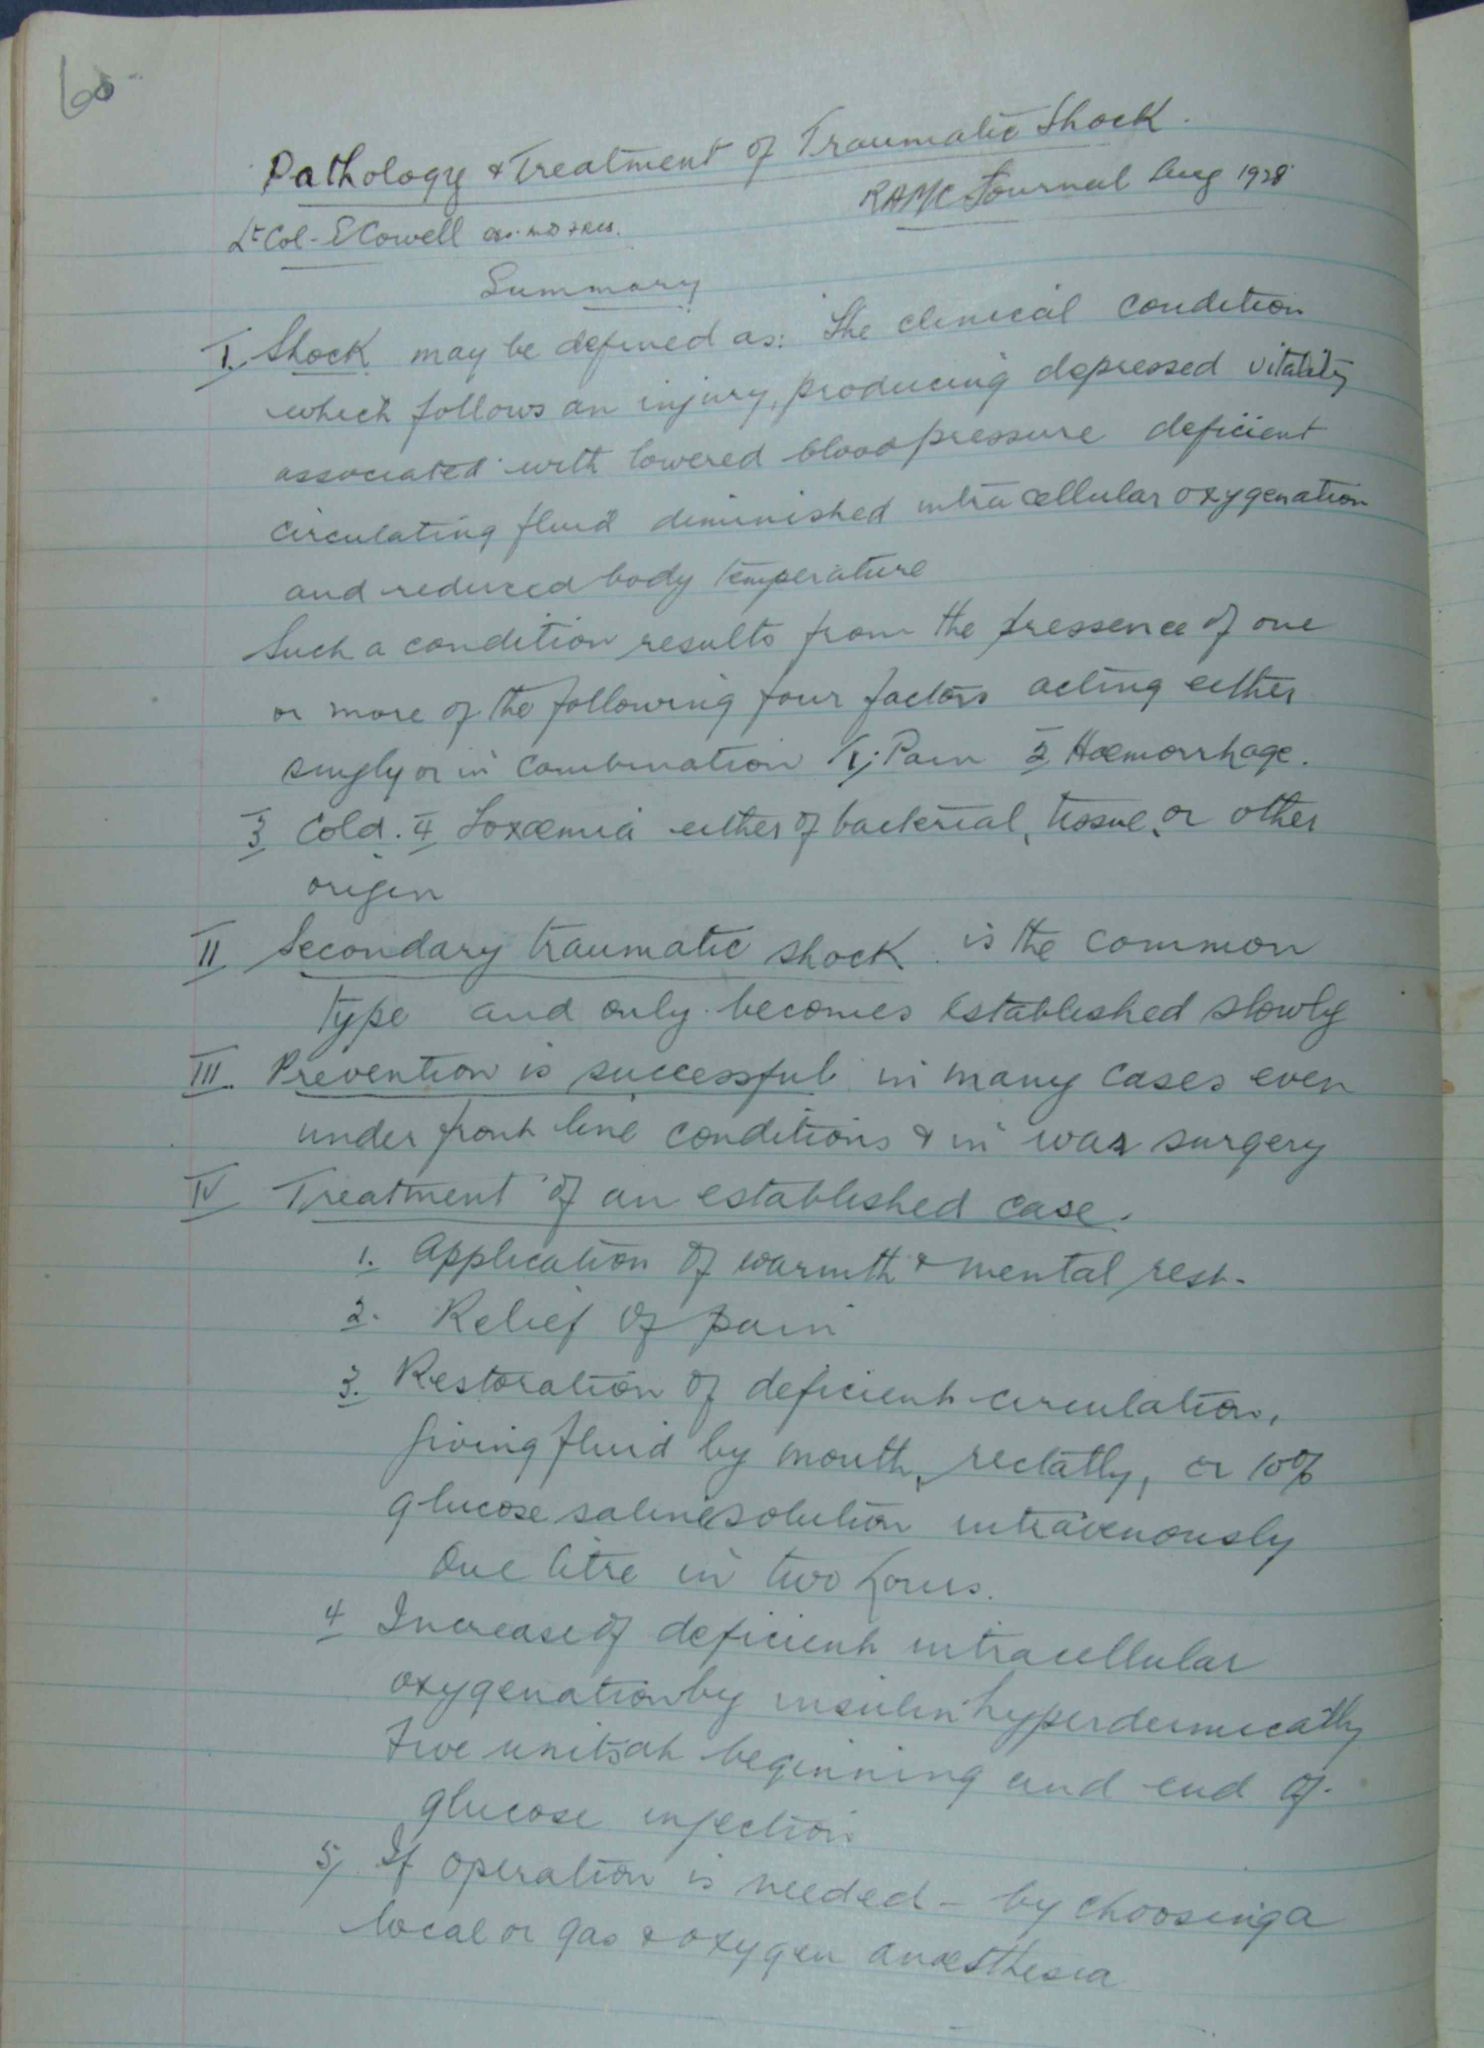 60
Pathology & Treatment of Traumatic Shock.
RAMC Journal Aug 1928
Lt Col - E Cowell
Summary
I. Shock may be defined as: The clinical condition
which follows an injury, producing depressed vitality
associated with lowered blood pressure deficient
circulating fluid diminished intracellular oxygenation
and reduced body temperature
Such a condition results from the pressence of one
or more of the following four factors acting either
singly or in combination 1, Pain 2 Hæmorrhage.
3 Cold. 4 Toxæmia either of bacterial, tissue, or other
origin
II Secondary traumatic shock is the common
type and only becomes established slowly
III. Prevention is successful in many cases even
under front line conditions & in war surgery
IV Treatment of an established case.
1. Application of warmth & mental rest.
2. Relief of pain
3. Restoration of deficient circulation,
giving fluid by mouth, rectally, or 10%
glucose saline solution intravenously
One litre in two hours.
4 Increase of deficient intracellular
oxygenation by insulin hyperdermically
Five units at beginning and end of
glucose injection
5, If operation is needed - by choosing a
local or gas & oxygen anæsthesia